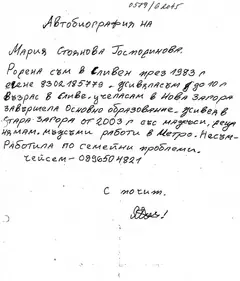 0579/6.2015
Автобиография на
Мария Стоянова Господинова.
Родена съм в Сливен през 1983 г
егене 8302185779 - живяласъм до 10 г
възрас в Сливе. учеласам в Нова Загора
завършела основно образование. живея в
Стара Загора от 2003 г със мажъси, деца
нямам. мъжъми работи в Метро. Несъм-
работила по семейни проблеми.
чейсем - 0896504821
С почит.